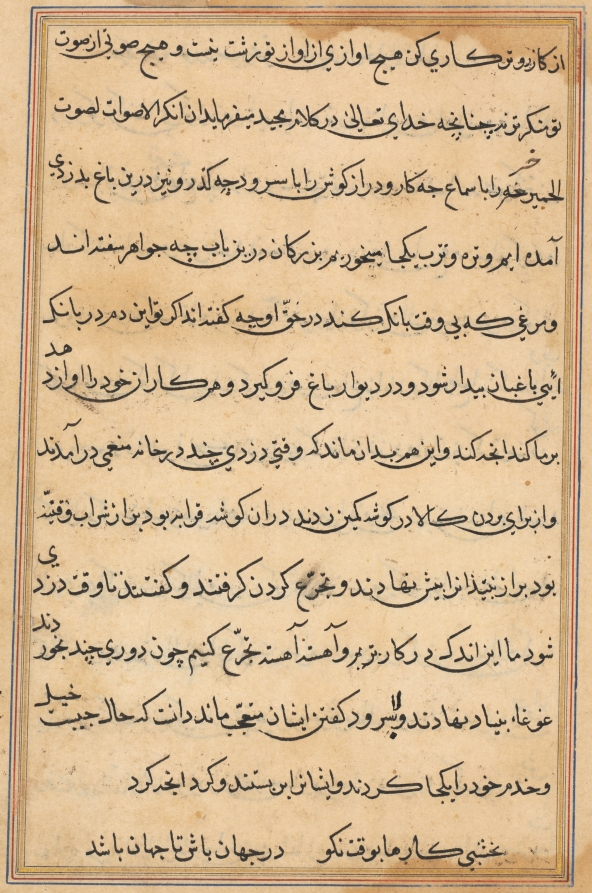 از کار تو و ترکاری کن هیچ اوازی از اواز تو زشت نیست و هیچ صوتی از صوت
تو منکرتر نه چنانچه خدای تعالی در کلام مجید میفرماید ان انکر الاصوات لصوت
الحمیر خر را با سماع چه کار و دراز کوش را با سرود چه کذر و نیز درین باغ بدزدی
آمده ایم و تره و ترب یکجا میخوریم بزرکان درین باب چه جواهر سفته اند
و مرغی که بی وقت بانک کند در حق او چه کفته اند اکر تو این دم در بانک
ائی باغبان بیدار شود و در دیوار باغ فرو کیرد و هر کار از خود را اواز دهد
بر ما کند انچه کند و این هم بدان ماند که وقتی دزدی چند در خانه منعمی درآمدند
و از برای بردن کالا در کوشه کمین زدند دران کوشه قرابه بود پر از شراب و قنینه
بود پر از نبیذ انرا پیش نهادند و تجرّع کردن کرفتند و کفتند تا وقت دزدی
شود ما این اندک در کار بریم و آهسته آهسته تجرّع کنیم چون دوری چند بخوردند
غوغاء بنیاد نهادند و سرود کفتن ایشان متعجب ماند دانست که حال چیست خیل
و خدم خود را یکجا کردند و ایشانرا بن بستند و کرد انچه کرد
نخشبی کارها بوقت نکو    در جهان باش تا جهان باشد